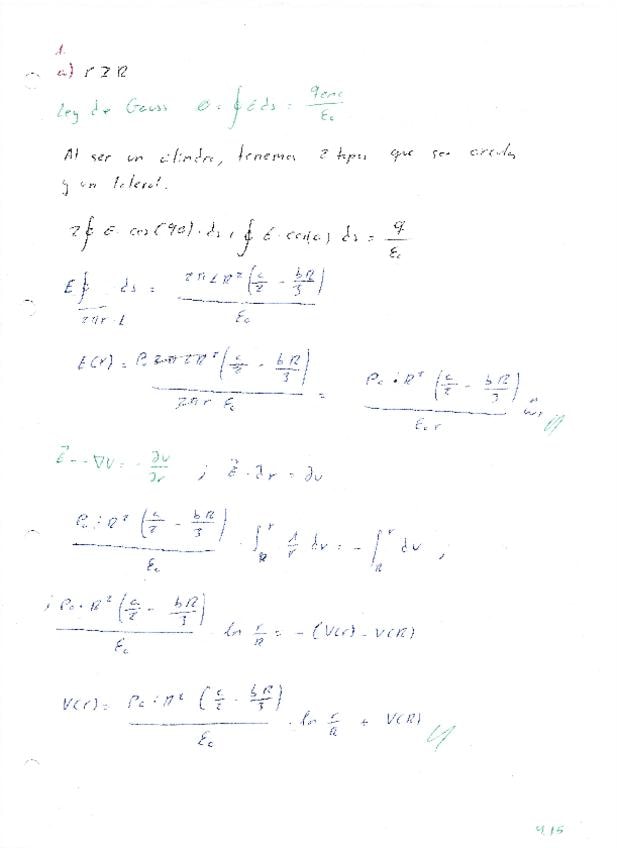 1.
a) r ≥ R
Ley de Gauss Θ = ∮ E ds = qenc / ε₀
Al ser un cilindro, tenemos 2 tapas que son circulos
y un lateral.
2 ∮ E · cos(90) · ds + ∮ E · cos(0) ds = q / ε₀
E ∮ ds = 2π L R² (a/2 - bR/3) / ε₀
2πr · L
E(r) = / 2πr ε₀ = ρ₀ · R² (a/2 - bR/3) / ε₀ r
E = -∇V = - ∂v/∂r ; E · ∂r = ∂v
ρ₀ · R² (a/2 - bR/3) / ε₀ · ∫_R^r 1/r dr = - ∫_R^r dv ;
; ρ₀ · R² (a/2 - bR/3) / ε₀ · ln r/R = - (V(r) - V(R)
V(r) = ρ₀ · R² (a/2 - bR/3) / ε₀ · ln r/R + V(R)